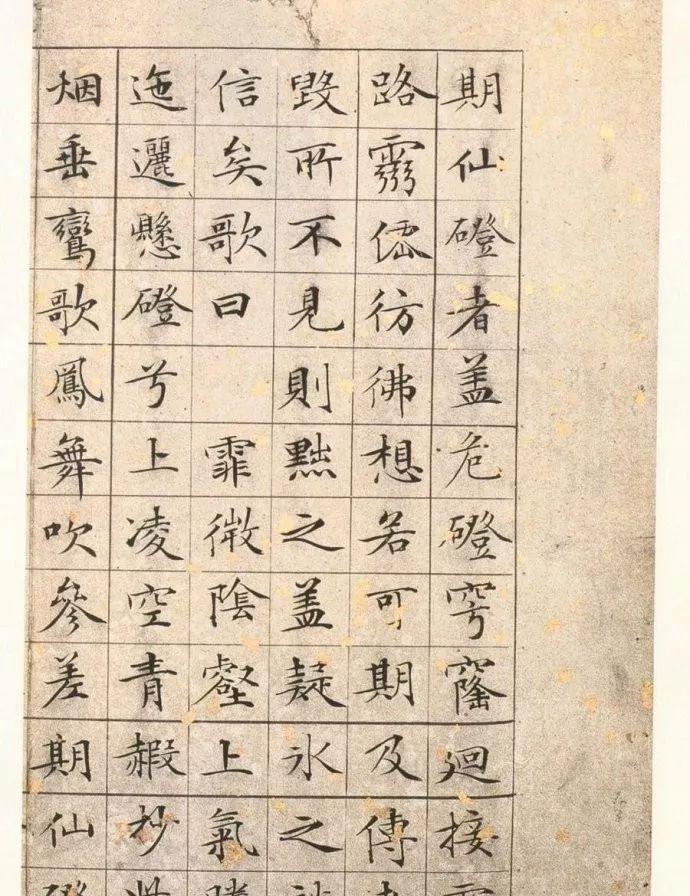 期仙磴者盖危磴穹窿迴接
路靈僊彷彿想若可期及傳
毀所不見則黜之盖疑氷之
信矣歌曰 霏微陰壑上氣
迤邐懸磴兮上凌空青赮杪
烟垂鸞歌鳳舞吹參差期仙磴